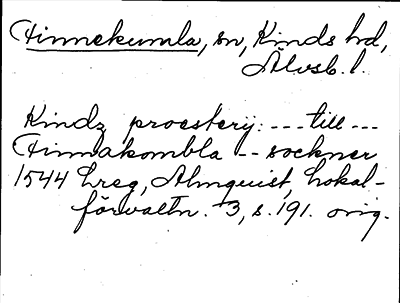 Finnekumla, sn, Kinds hd,
Älvsb. l.
Kindz proesterij: --- till ---
Finnakombla -- sockner
1544 Lreg, Almquist, Lokal-
förvaltn. 3, s. 191. orig.